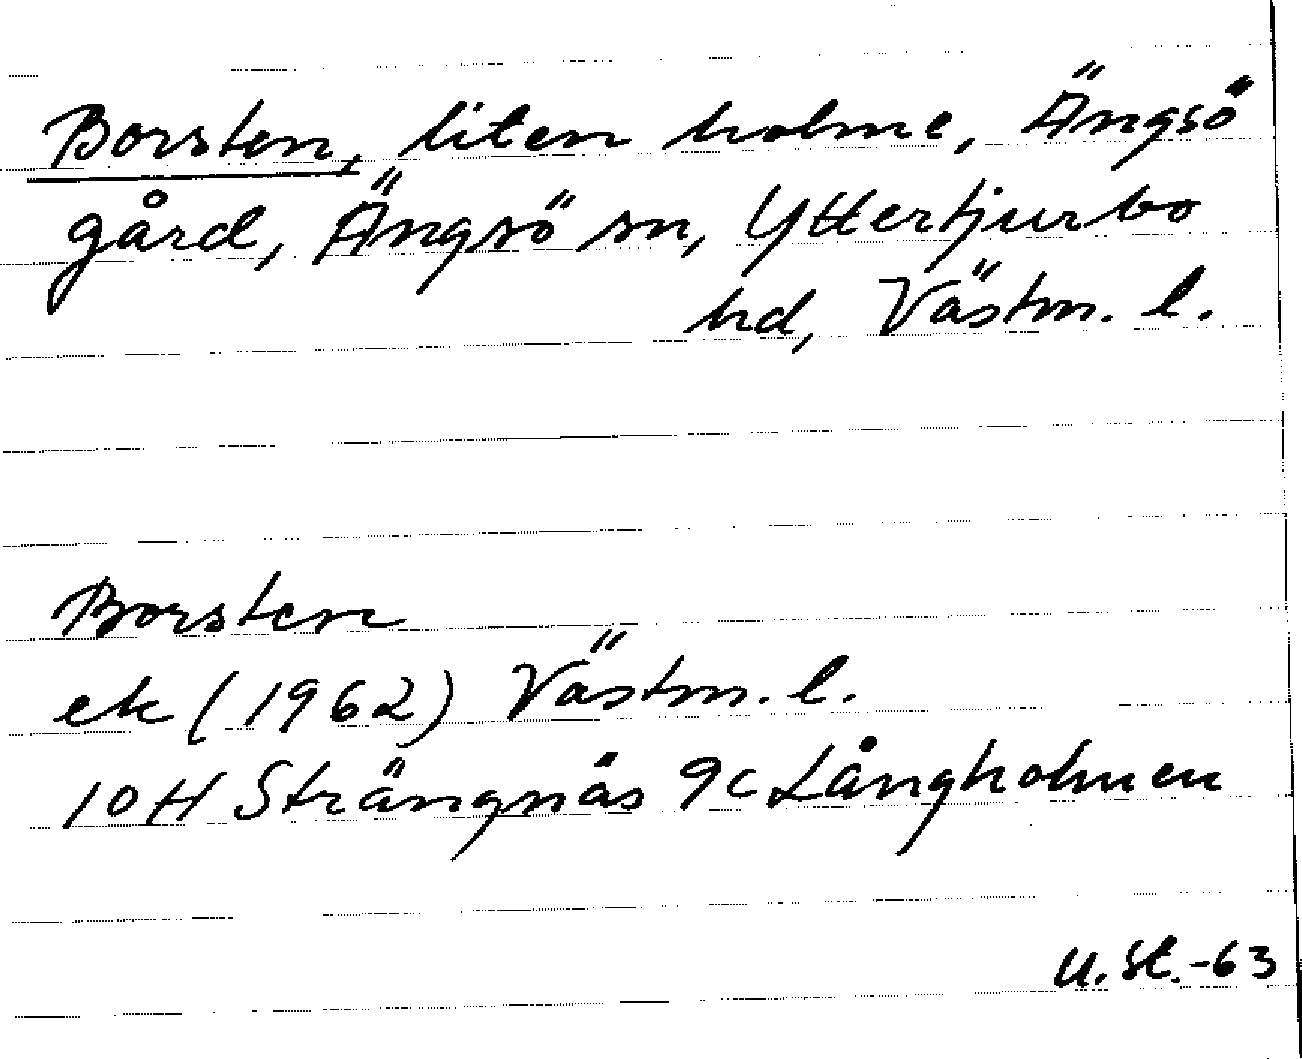 Borsten, liten holme, Ängsö
gård, Ängsö sn, Yttertjurbo
hd, Västm. l.
Borsten
ek (1962) Västm. l.
10H Strängnäs 9c Långholmen
U.St.-63